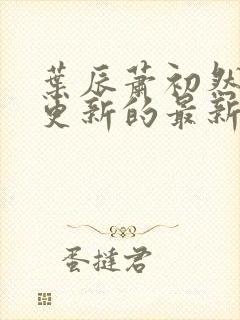 葉辰蕭初然
更新的最新
蛋撻君